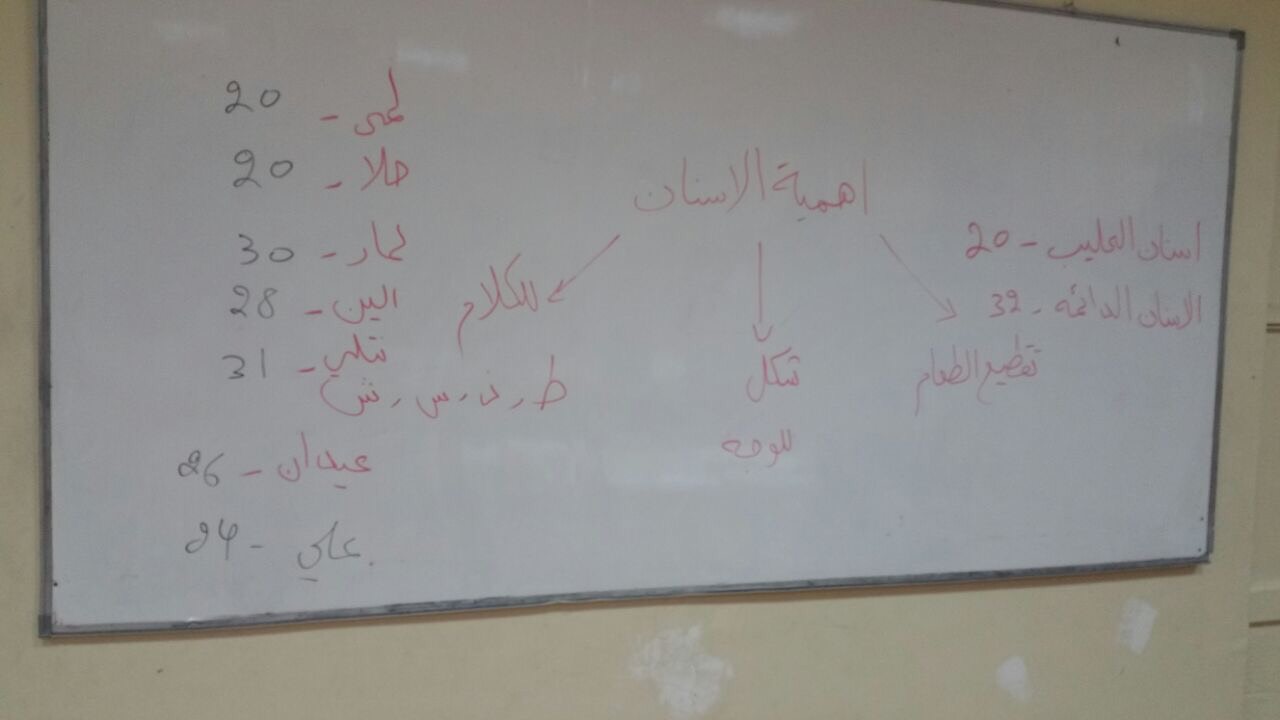 اهمية الاسنان
اسنان الحليب - 20
الاسنان الدائمه - 32
تقطيع الطعام
شكل
للوجه
للكلام
ط ر ذ ر س ر ش
لمى - 20
حلا - 20
30
الين - 28
31
26
علي - 24